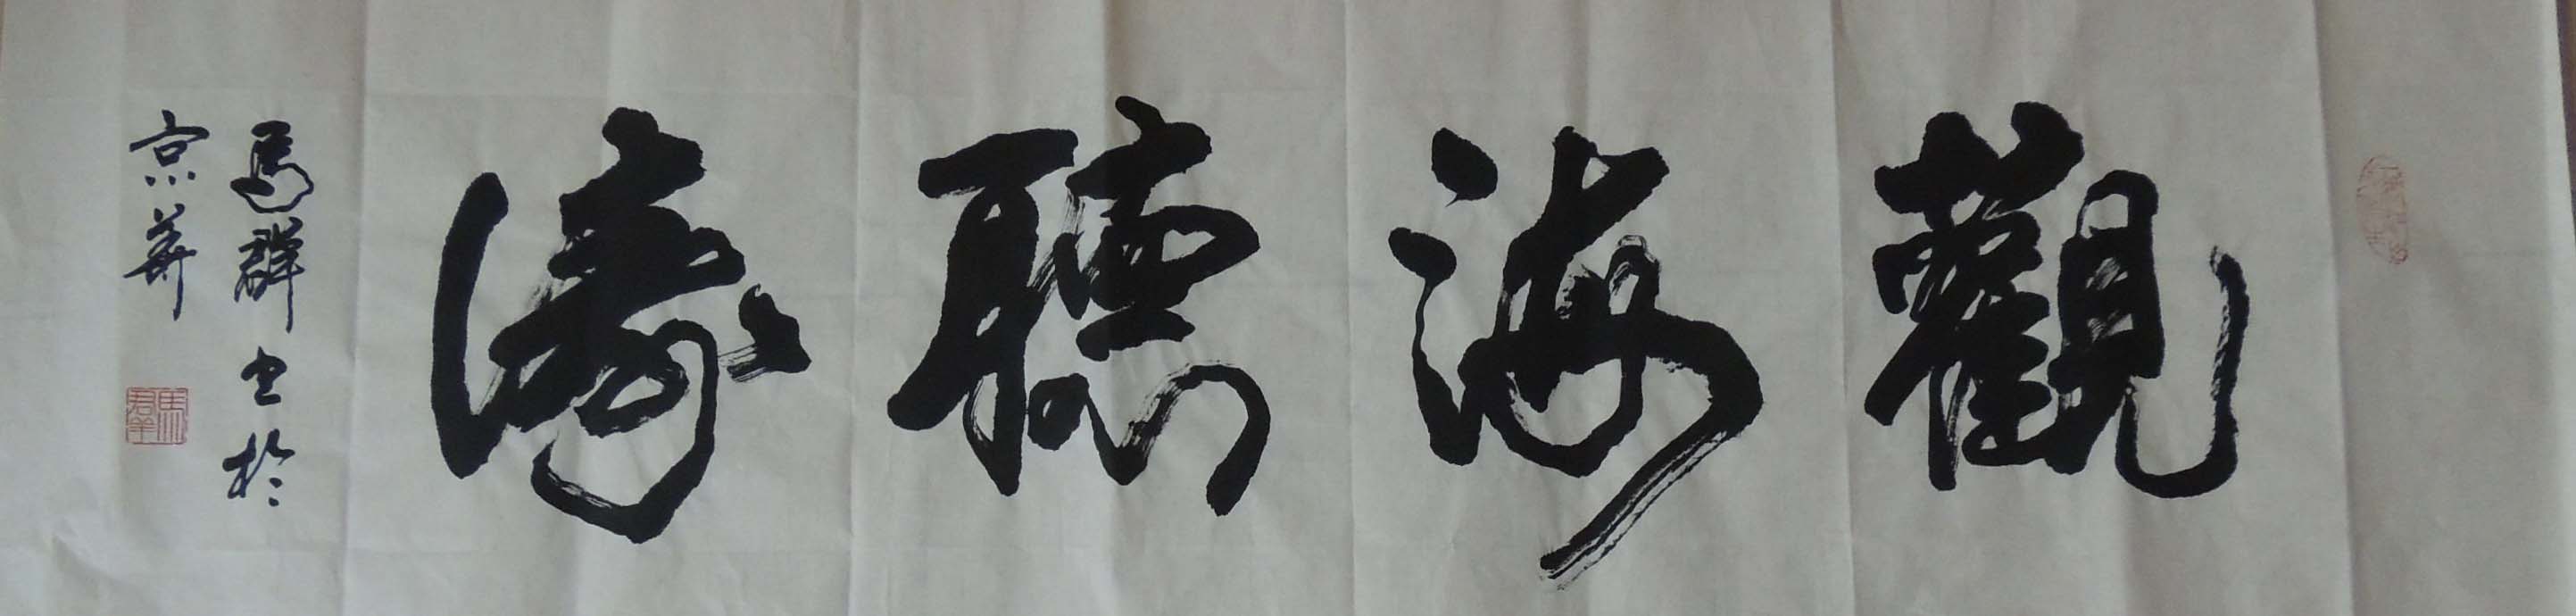 觀海聽濤
馬群書於
京華
馬群